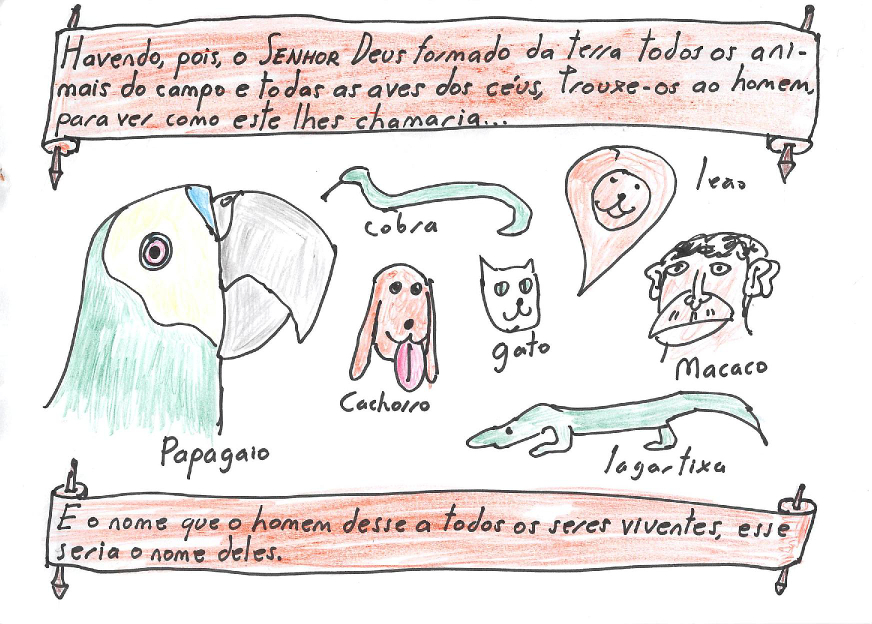 Havendo, pois, o SENHOR Deus formado da terra todos os ani-
mais do campo e todas as aves dos céus, trouxe-os ao homem,
para ver como este lhes chamaria...
leão
cobra
gato
Macaco
Cachorro
Papagaio
lagartixa
E o nome que o homem desse a todos os seres viventes, esse
seria o nome deles.